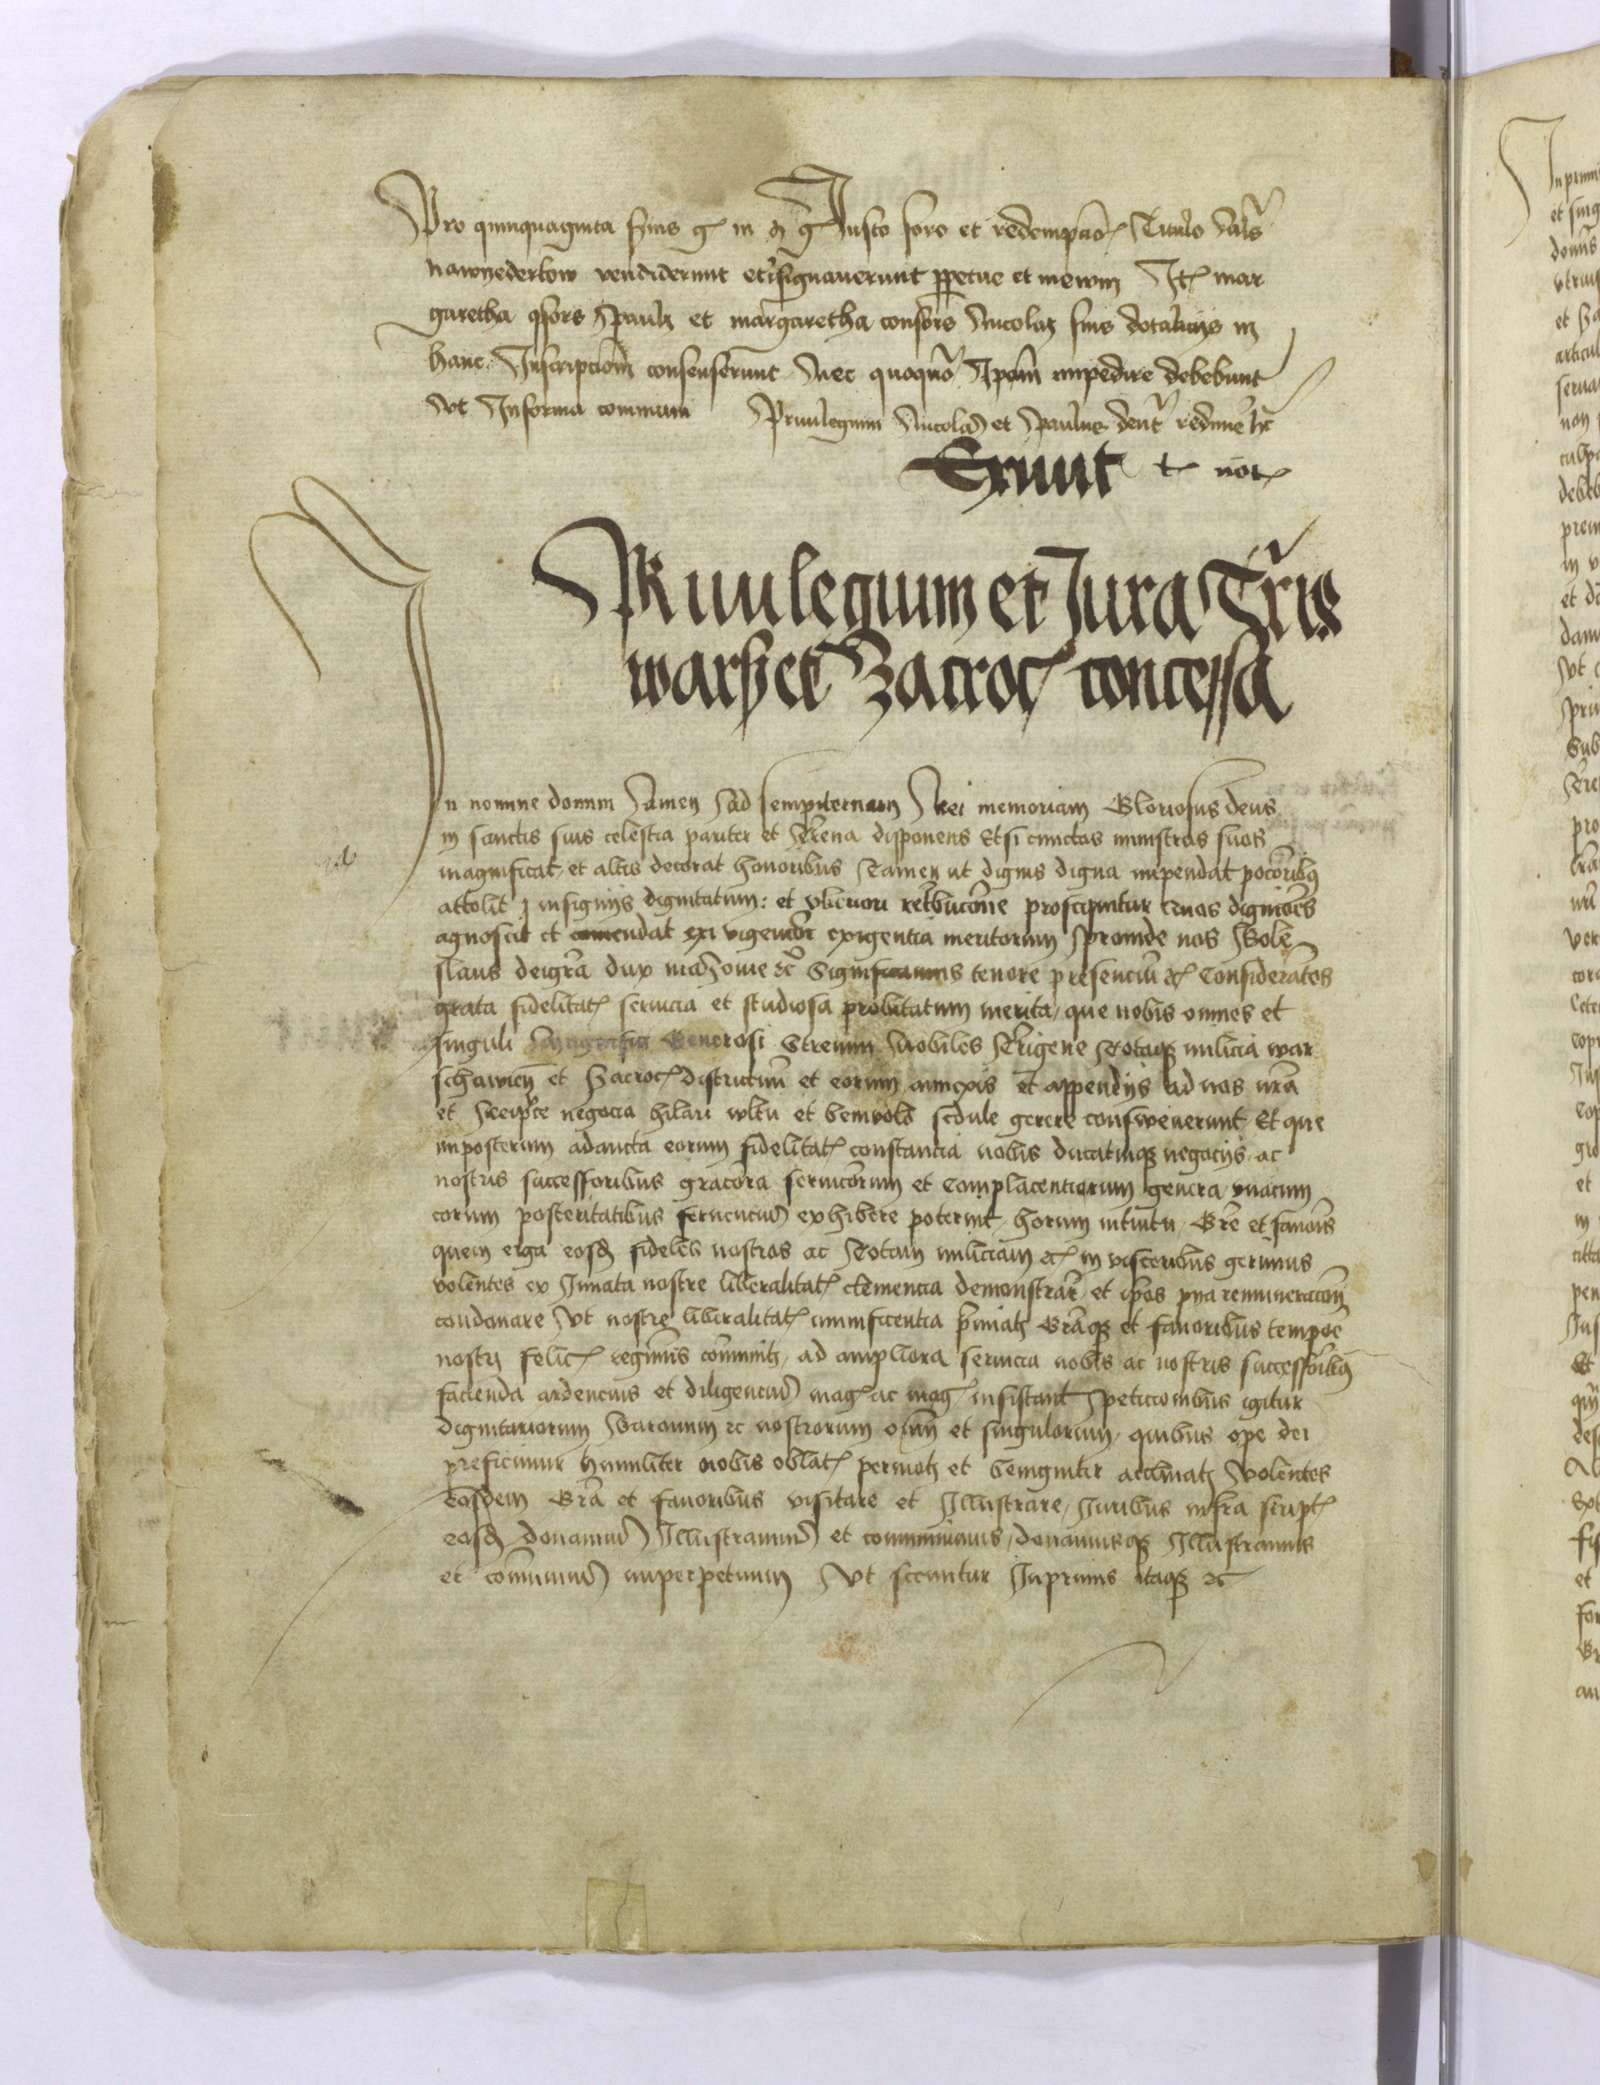 Pro quinquaginta sexag gr in d gr Justo foro et redempcōe Titulo
nawyederkow vendiderunt et resignaverunt ppetue et in ewm Itē mar
garetha ɔsors Pauli et margaretha consors Nicolai suis dotalicijs in
hanc Inscripcionem consenserunt Nec quoquō Ipam impedire debebunt
Ut Informa communi Privilegium Nicolaus et Paulus redimere
Erunt et not
Privilegium et Jura Tr̄is
warsch et Zacroc concessa
In nomine domini Amen Ad sempiternam Rei memoriam Gloriosus deus
in sanctis suis celestia pariter et terrena disponens Etsi cunctos ministros suos
magnificat et altis decorat honoribus Tamen ut dignis digna impendat pocoribus
attolit insignijs dignitatum: et uberiori retribucione prosequitur quos digniores
agnoscit et exigentia meritorum Proinde nos Bole
slaus dei gra dux mazouie etc Significamus tenore presenciū etc Considerātes
grata fidelitat servicia et studiosa probitatum merita, que nobis omnes et
singuli Generosi Strenui Nobiles Terrigene Totaqz milicia war
schavien et Zacroc districtuū et eorum annexis et appendijs ad nos nrā
et negocia hilari wltu et benivolo sedule gerere consweverunt Et que
imposterum adaucta eorum fidelitat constancia nobis ducatuiqz negocijs ac
nostris successoribus graciora serviciorum et complacentiarum genera unacum
eorum posteritatibus ferventius exhibere poterint, horum intuitu Gre et favoris
quem erga eosdem fideles nostros ac Totam miliciam etc in visceribus gerimus
volentes ex Innata nostre liberalitat clemencia demonstrare et ipos pna remuneracione
condonare Ut nostre liberalitat munificentia Graqz et favoribus tempore
nostri felic regiminis, ad ampliora servicia nobis ac nostris successoribus
facienda ardencius et diligencius mag ac mag insistant Peticionibus igitur
dignitariorum Baronum etc nostrorum oīm et singulorum, quibus ope dei
preficimur humiliter nobis oblat permoti et benigniter acclinati Volentes
eosdem Grā et favoribus visitare et Illustrare, Juribus infra script
eosdem donamus Illustramus et communimus, donavimusqz Illustravimus
et imperpetuum Ut secuntur Inprimis itaqz etc